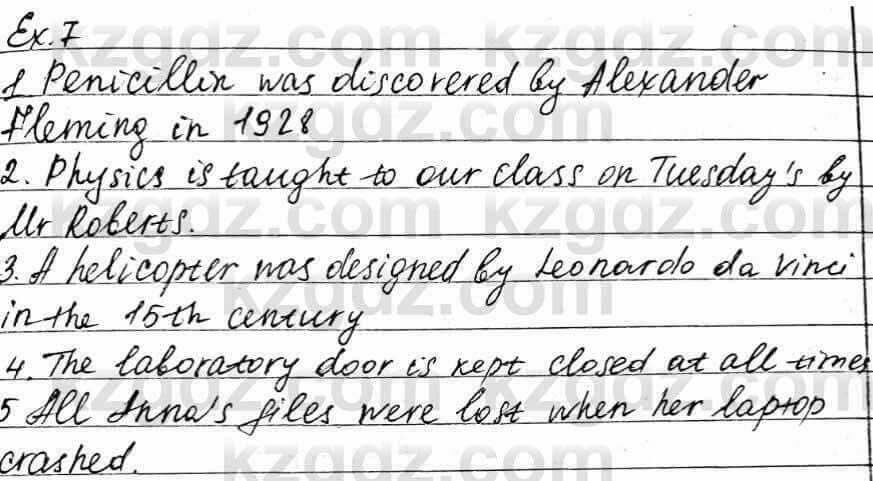 Ex. 7
1 Penicillin was discovered by Alexander
Fleming in 1928
2. Physics is taught to our class on Tuesday's by
Mr Roberts.
3. A helicopter was designed by Leonardo da Vinci
in the 15th century
4. The laboratory door is kept closed at all times
5 All Anna's files were lost when her laptop
crashed.